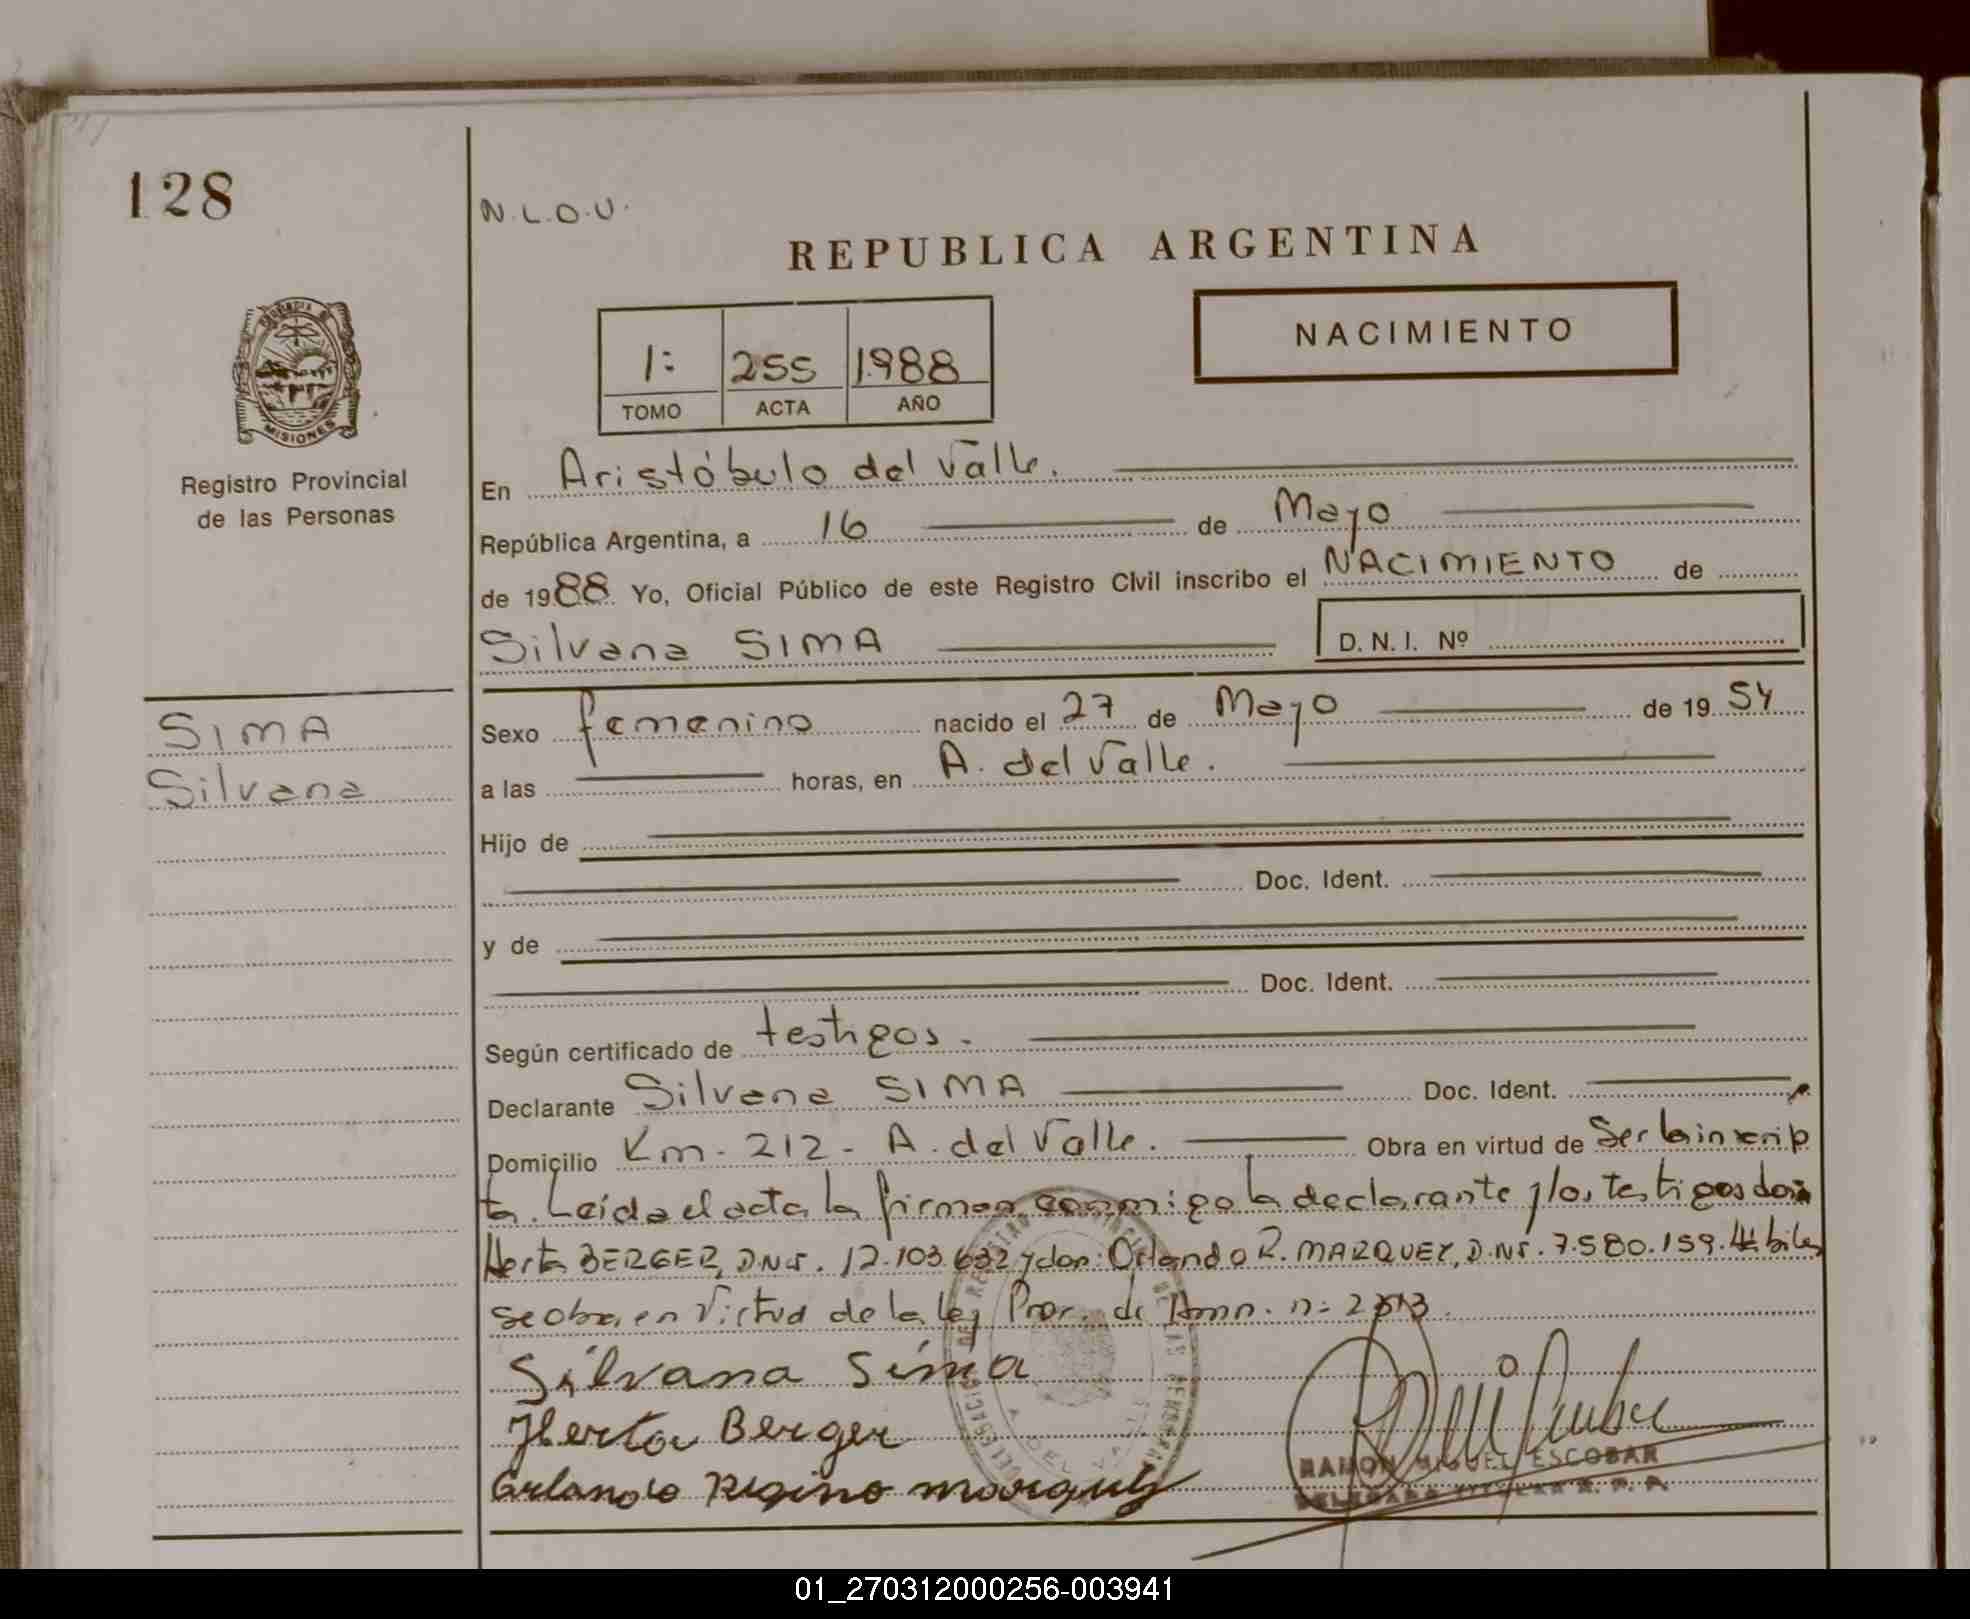 128
N.L.O.U.
REPUBLICA ARGENTINA
NACIMIENTO
1: 255 1.988
TOMO ACTA AÑO
MISIONES
Registro Provincial
de las Personas
En Aristóbulo del Valle.
República Argentina, a 16 de Mayo
de 1988 Yo, Oficial Público de este Registro Civil inscribo el NACIMIENTO de
Silvana SIMA D. N. I. Nº
SIMA
Silvana
Sexo femenino nacido el 27 de Mayo de 19 54
a las horas, en A. del Valle.
Hijo de
Doc. Ident.
y de
Doc. Ident.
Según certificado de testigos.
Declarante Silvana SIMA Doc. Ident.
Domicilio Km. 212 - A. del Valle. Obra en virtud de Ser la inscrip
ta. Leída el acta la firman conmigo la declarante y los testigos doña
Herta BERGER, D.N.I. 12.103.632 y don: Orlando R. MARQUEZ, D.N.I. 7.580.159.
se obra en Virtud de la ley Prov. de Amn. n=
Silvana Sima
Herta Berger
Orlando Regino Marquez
RAMON MIGUEL ESCOBAR
01_270312000256-003941